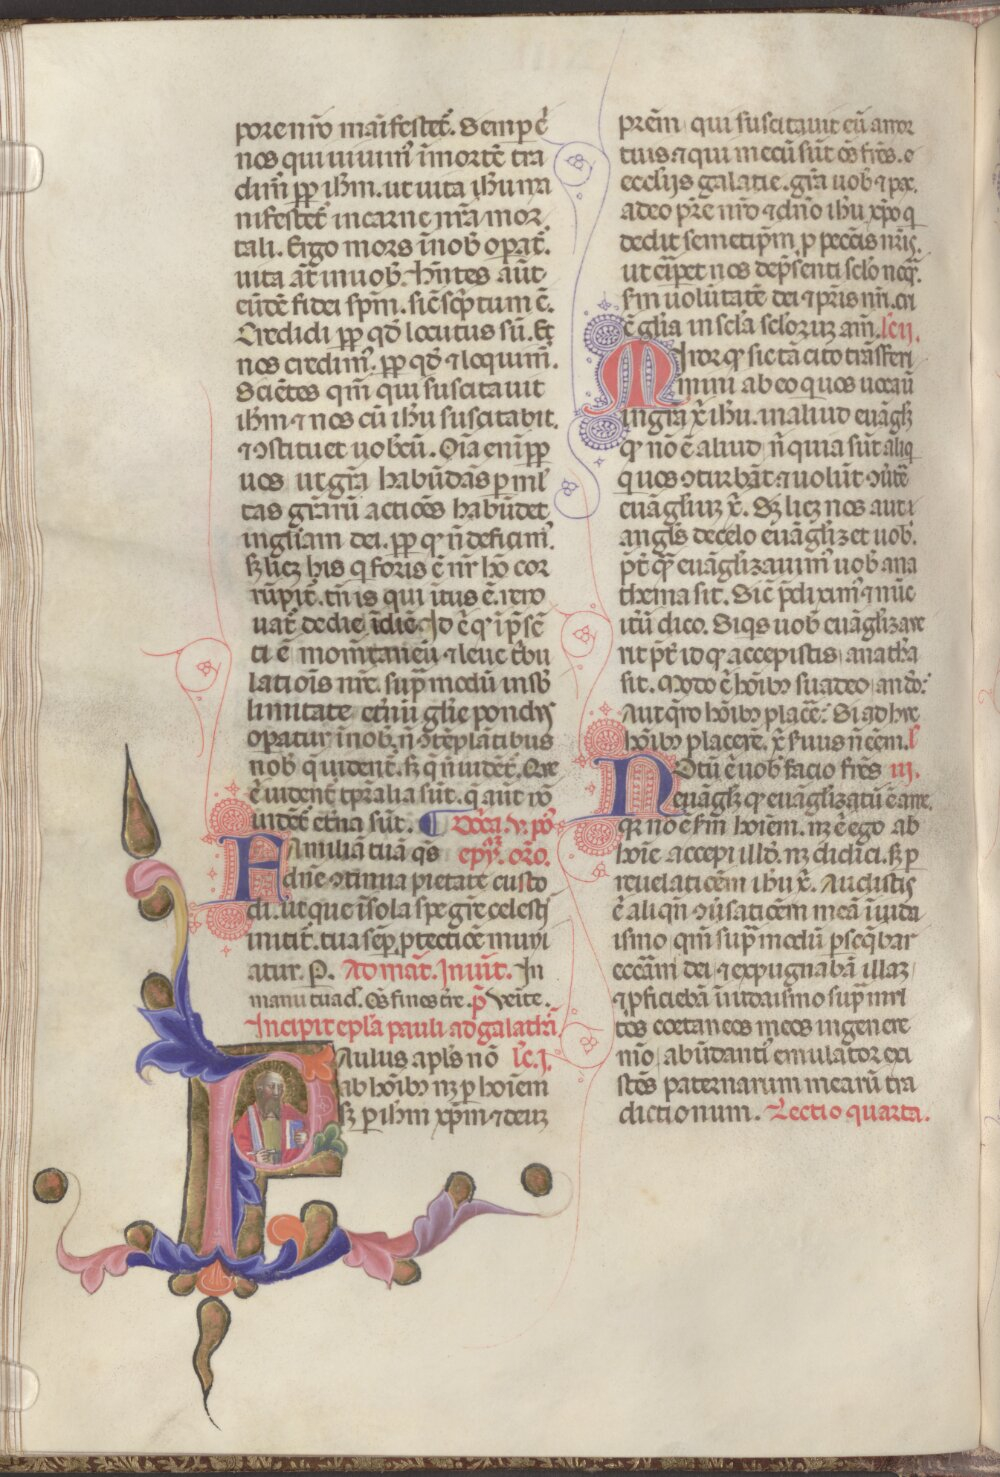 pore nr̄o manifestet᷒. Semp eī
nos qui uiuim᷒ ī mortē tra
dim᷒ pp̄ ih̄m. ut uita ih̄u ma
nifestet᷒ in carne nr̄a mor
tali. Ergo mors ī nob̄ opat᷒.
uita at̄ in uob̄. Hn̄tes aūt
eūdē fidei sp̄m. sic̄ sc̄ptum ē.
Credidi pp̄ qd̄ locutus sū. Et
nos credim᷒. pp̄ qd̄ ⁊ loquim᷒.
Scientes qm̄ qui suscitauit
ih̄m ⁊ nos cū ih̄u suscitabit.
⁊ ↄstituet uobcū. Om̄ia enī pp̄
uos ut gr̄a habūdās p ml
tas gr̄arū actiōes habūdet
in gl̄iam dei. pp̄ qꝫ n̄ deficim᷒.
sꝫ licꝫ his q foris ē nr̄ hō cor
rūpit᷒. tn̄ is qui ītus ē. reno
uat᷒ de die ī diē. Id ē qꝫ ī p̄sē
ti ē momētaneū ⁊ leue tbu
latiōis nr̄e. sup̄ modū in sub
limitate et̄nū gl̄ie pondus
opatur ī nob̄. n̄ ↄtēplātibus
nob̄ q uident᷒. sꝫ q n̄ uidēt᷒. Que
ē uident᷒ tpr̄alia sūt. q aūt nō
uidēt᷒ et̄na sūt. ¶ Dn̄ica. v. pꝰ
Familiā tuā qs̄ epyꝫ. or̄o.
dn̄e ↄtinua pietate custo
di. ut que ī sola spe gr̄e celestis
initit᷒. tua sēp ptectiōe muni
atur. P. Ad mat᷒. Inuit᷒. In
manu tua d. Oēs fines tr̄e. p̄ Venite.
Incipit epl̄a pauli ad galathas
Paulus apl̄s nō lc̄. i.
ab hoīibꝫ nꝫ p hoīem
sꝫ p ih̄m xp̄m ⁊ deuꝫ
prēm qui suscitauit eū a mor
tuis ⁊ qui mecū sūt oēs frēs.
ecclesiis galatie. gr̄a uob̄ ⁊ pax.
a deo pr̄e nr̄o ⁊ dn̄o ih̄u xp̄o q
dedit semetip̄m. p peccatis nr̄is.
ut eripet nos de p̄senti sclo neq̄.
s̄m uolūtatē dei ⁊ pr̄is nr̄i. cui
ē gl̄ia in scl̄a scl̄oruꝫ am̄. lc̄. ii.
Miror qꝫ sic tā cito trāsferi
mini ab eo quos uocauit
in grā x̄ ih̄u. in aliud euāgl̄ꝫ
qꝫ nō ē aliud. n̄ quia sūt aliq
q uos ↄturbāt ⁊ uolūt ↄuīte
euāgl̄iuꝫ x̄. Sꝫ licꝫ nos aut
angl̄s de celo euāgl̄iꝫet uob̄.
pt̄ qꝫ euāgl̄iꝫauim᷒ uob̄ ana
thema sit. Sic̄ p̄diximus ⁊ nūc
itū dico. Siqs uob̄ euāgl̄iꝫaue
rit pt̄ id qꝫ accepistis anathā
sit. Modo ē hoībꝫ suadeo an deo
Aut q̄ro hoībꝫ placere. Si adhuc
hoībꝫ placerē. x̄ suus n̄ cēm. l
Notū ē uob̄ facio frēs iii.
euāgl̄ꝫ qꝫ euāgl̄iꝫatū ē a me.
qꝫ nō ē s̄m hoīem. nꝫ ē ego ab
hoīe accepi illd̄. nꝫ didici. sꝫ p
reuelatiōem ih̄u x̄. Audistis
ē aliqn̄ ↄūsatiōem meā ī iuda
ismo qm̄ sup̄ modū psequebar
eccl̄iam dei. ⁊ expugnabā illaꝫ
⁊ pficiebā ī iudaismo sup̄ ml
tos coetaneos meos in genere
meo, abūdantī emulator exi
stēs paternarum mearū tra
dictionum. Lectio quarta.